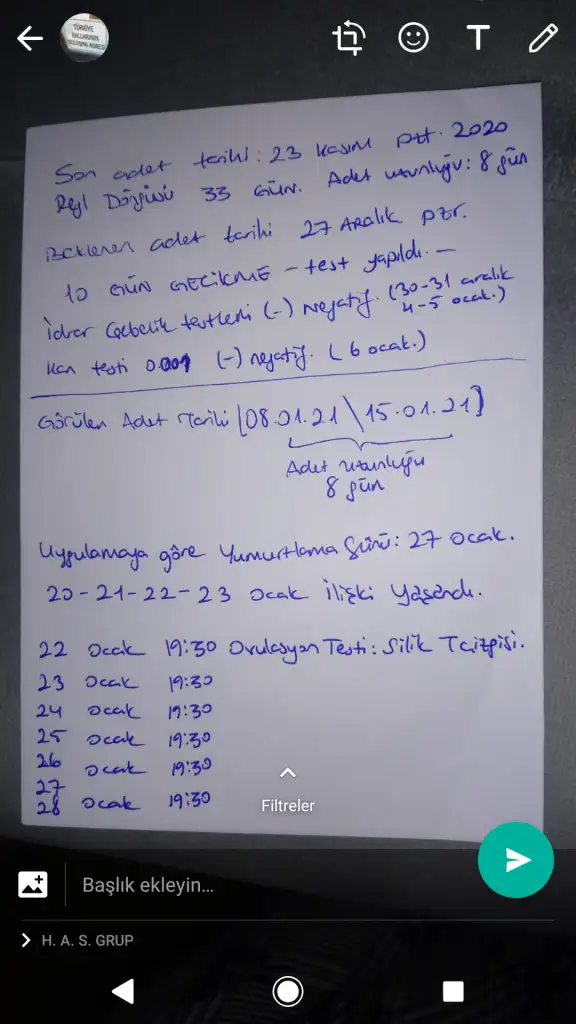 TÜRKİYE
Son adet tarihi: 23 Kasım Pzt. 2020
Regl Döngüsü 33 Gün. Adet uzunluğu: 8 gün
Beklenen adet tarihi 27 Aralık Pzr.
10 GÜN GECİKME - test yapıldı. -
İdrar Gebelik testleri (-) Negatif. (30-31 aralık
4-5 ocak.)
Kan testi 0.001 (-) negatif. (6 ocak.)
Görülen Adet Tarihi [08.01.21 \ 15.01.21]
Adet uzunluğu
8 gün
Uygulamaya göre Yumurtlama Günü: 27 Ocak.
20-21-22-23 Ocak İlişki Yaşandı.
22 Ocak 19:30 Ovulasyon Testi: Silik T çizgisi.
23 Ocak 19:30
24 Ocak 19:30
25 Ocak 19:30
26 Ocak 19:30
27
28 Ocak 19:30
Filtreler
Başlık ekleyin...
H. A. S. GRUP